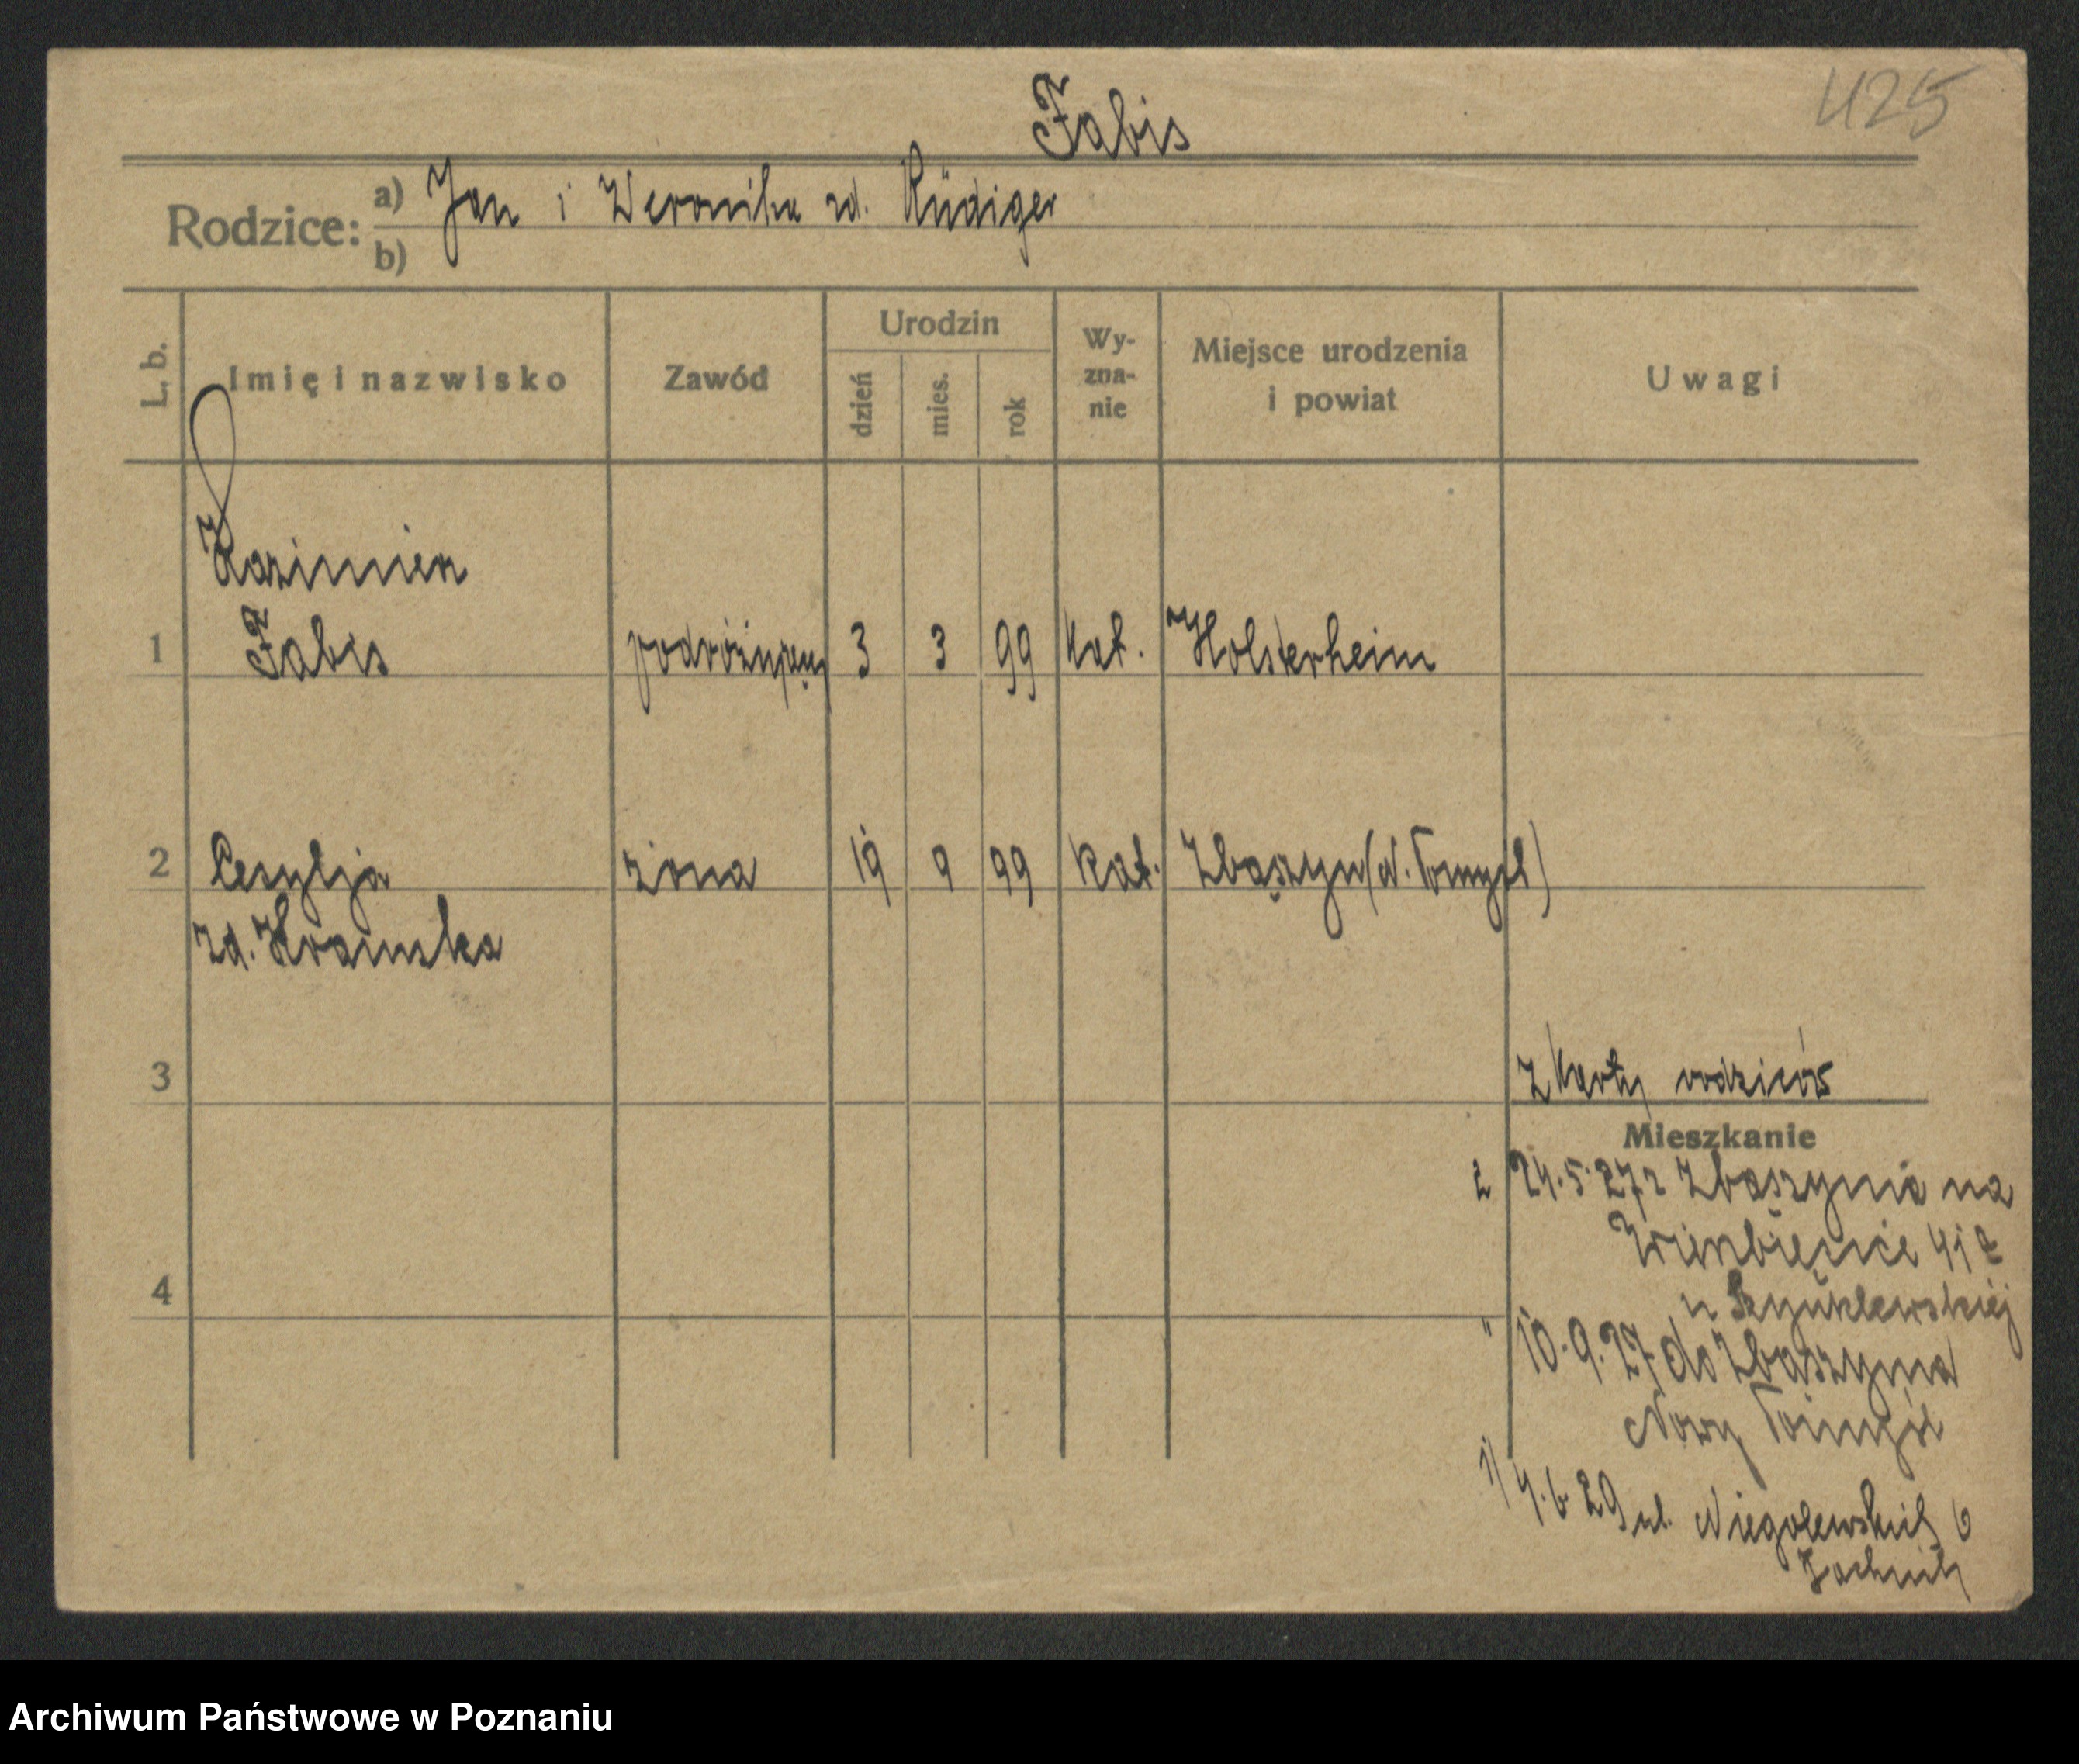 425
Fabis
Rodzice: a) Jan i Weronika zd. Rüdiger
b)
L. b. Imię i nazwisko Zawód Urodzin dzień mies. rok Wy-zna-nie Miejsce urodzenia i powiat Uwagi
Kazimierz
1 Fabis podróżujący 3 3 99 kat. Holsterheim
2 Cesylja żona 19 9 99 kat. Zbąszyn (N. Tomyśl)
zd. Kramska
3 Z karty rodziców
Mieszkanie
2 24.5.27 z Zbąszynia na
Wierzbięcice 41a
4 u
" 10.9.27 do Zbąszynia
Nowy Tomyśl
1) 4.6.29 ul. Niegolewskich 6
Archiwum Państwowe w Poznaniu